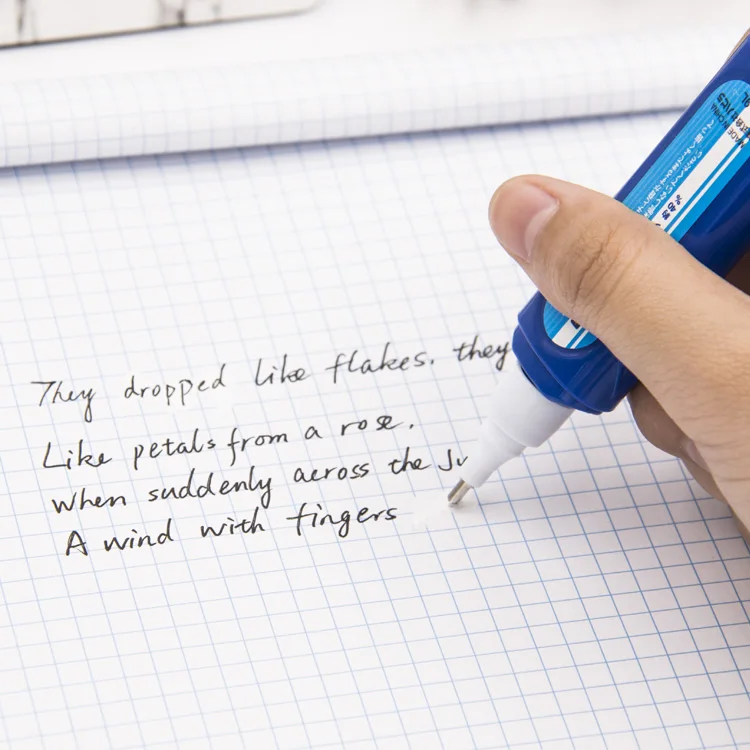 They dropped like flakes. they
Like petals from a rose.
When suddenly across the Ju
A wind with fingers
MADE IN CHINA